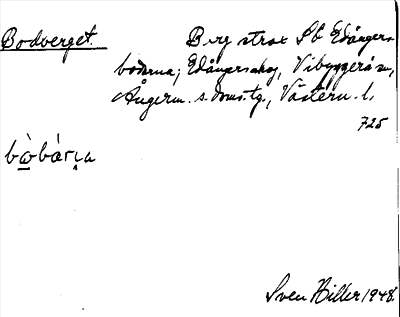 Bodverget. Berg strax S b Edångers-
bodarna; Edångerskog, Vibyggerå sn,
Ångerm. s. domstg., Västern. l.
725
bὼbárı̣a
Sven Hiller 1948.